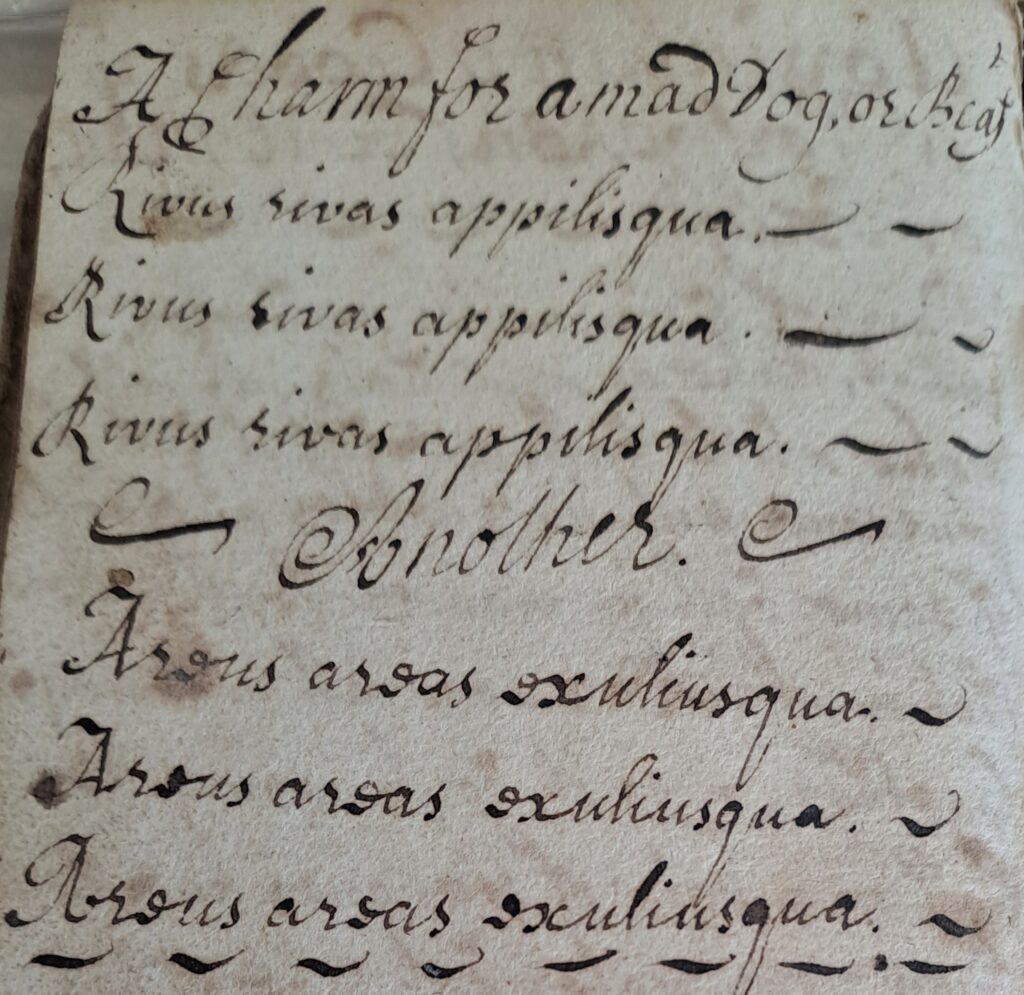 A Charm for a mad Dog, or Beast
Rivus rivas appilisqua.
Rivus rivas appilisqua.
Rivus rivas appilisqua.
Another.
Areus areas exuliusqua.
Areus areas exuliusqua.
Areus areas exuliusqua.